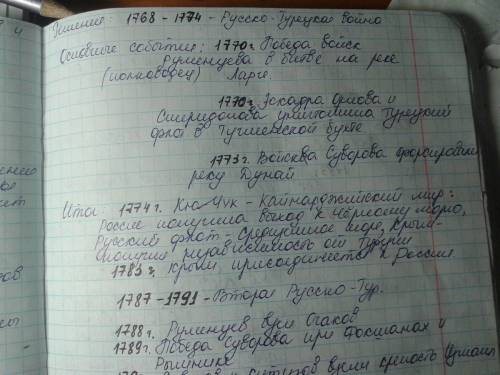 Решение: 1768 - 1774 - Русско-Турецкая война
Основные события: 1770г. Победа войск
Румянцева в битве на реке
(полководец) Ларге.
1770г. Эскадра Орлова и
Спиридонова уничтожила турецкий
флот в Бухте
1773г. Войска Суворова форсировали
реку Дунай
Итог: 1774г. Кючук - Кайнарджийский мир:
Россия получила выход к Чёрному морю,
Русский флот - Средиземное море, Крым -
получил независимость от Турции
1783г. Крым присоединяется к России
1787 - 1791 - Вторая Русско-Тур.
1788г. Румянцев взял Очаков
1789г. Победа Суворова при Фокшанах и
Рымнике
взяли крепость Измаил